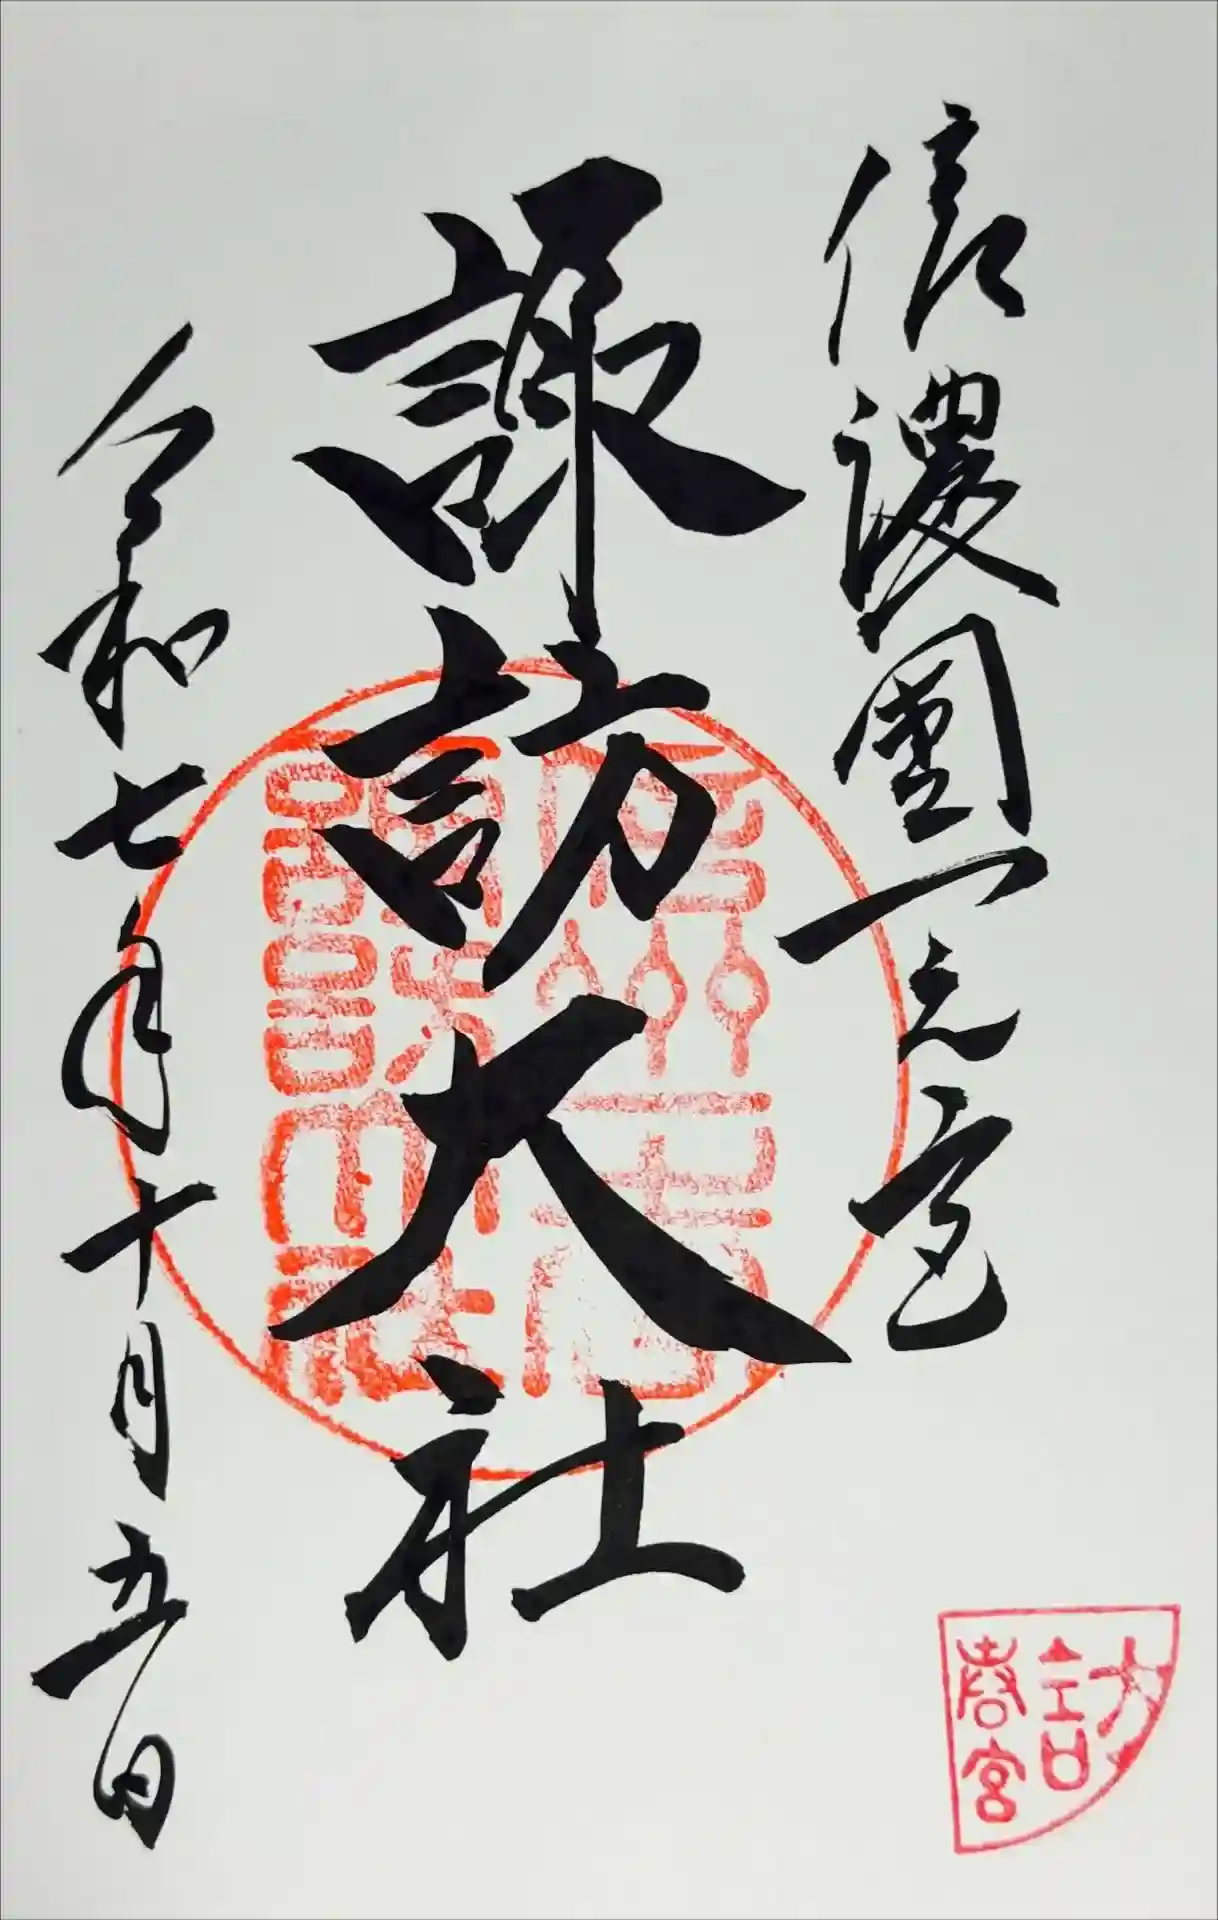 信濃國一之宮
諏訪大社
令和七年十月五日
訪
春宮